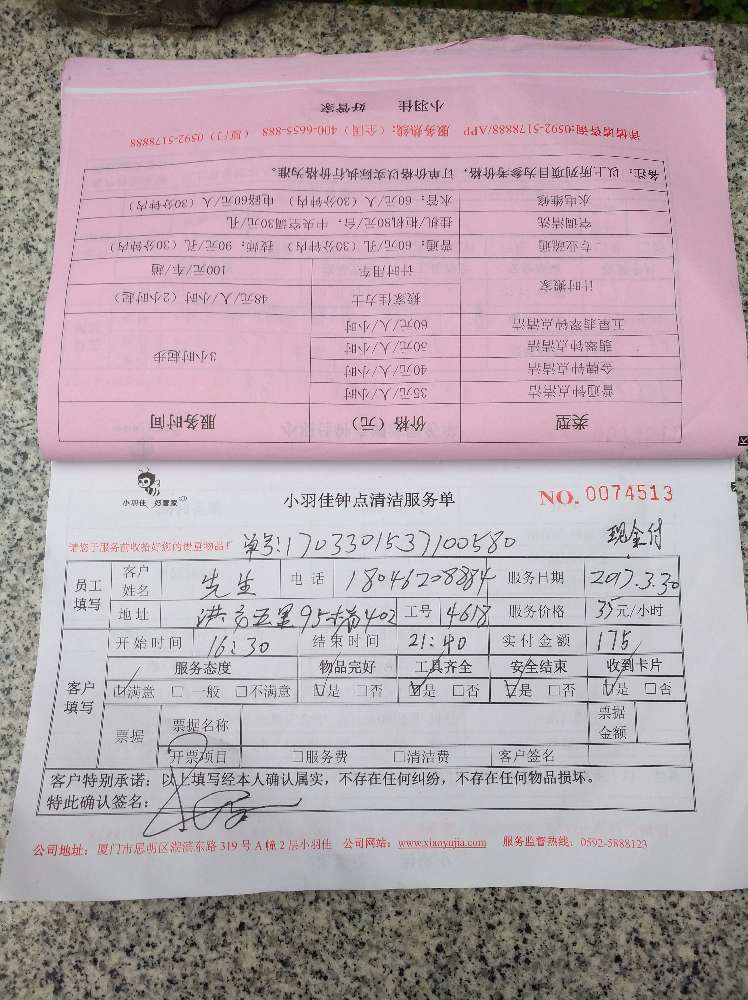 小羽佳 好管家
详情请咨询:0592-5178888/APP 服务热线:(全国)400-6655-888 (厦门)0592-5178888
类型 价格(元) 服务时间
普通钟点清洁 35元/人/小时 3小时起步
金牌钟点清洁 40元/人/小时
翡翠钟点清洁 50元/人/小时
五星翡翠钟点清洁 60元/人/小时
计时搬家 搬家佳力士 48元/人/小时(2小时起)
计时用车 100元/车/趟
专业疏通 普通:60元/孔(30分钟内) 技师:90元/孔(30分钟内)
空调清洗 挂机/柜机80元/台,中央空调30元/孔
水电维修 水管:60元/人(30分钟内) 电路60元/人(30分钟内)
备注:以上所列项目为参考价格,订单价格以实际执行价格为准。
小羽佳 好管家
小羽佳钟点清洁服务单
NO. 0074513
请您于服务前收拾好您的贵重物品!
单号:1703301537100580
现金付
员工填写 客户姓名 先生 电话 18046208884 服务日期 2017.3.30
地址 洪文五里95 402 工号 4618 服务价格 35元/小时
客户填写 开始时间 16:30 结束时间 21:40 实付金额 175
服务态度 物品完好 工具齐全 安全结束 收到卡片
☑满意 □一般 □不满意 ☑是 □否 ☑是 □否 ☑是 □否 ☑是 □否
票据 票据名称 票据金额
开票项目 □服务费 □清洁费 客户签名
客户特别承诺:以上填写经本人确认属实,不存在任何纠纷,不存在任何物品损坏。
特此确认签名:
公司地址:厦门市思明区湖滨东路319号A幢2层小羽佳 公司网站:www.xiaoyujia.com 服务监督热线:0592-5888123